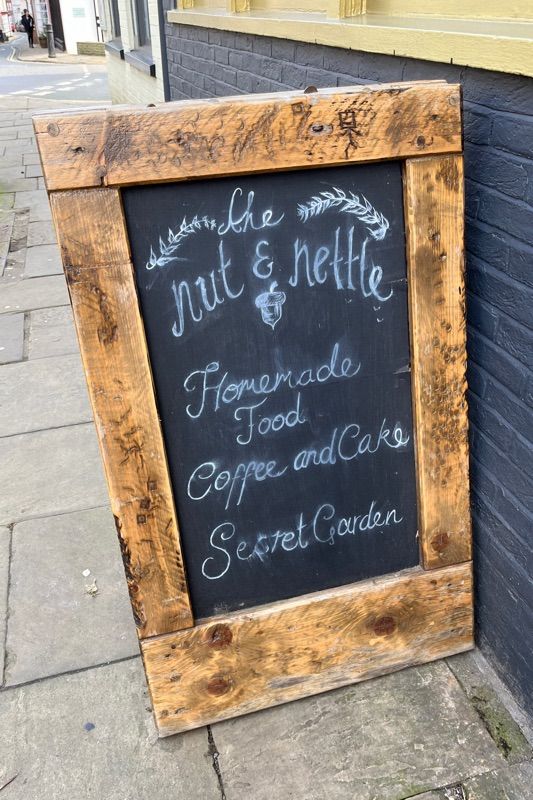 the
nut & nettle
Homemade
Food
Coffee and Cake
Secret Garden